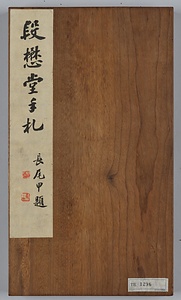 段懋堂手札
長尾甲題